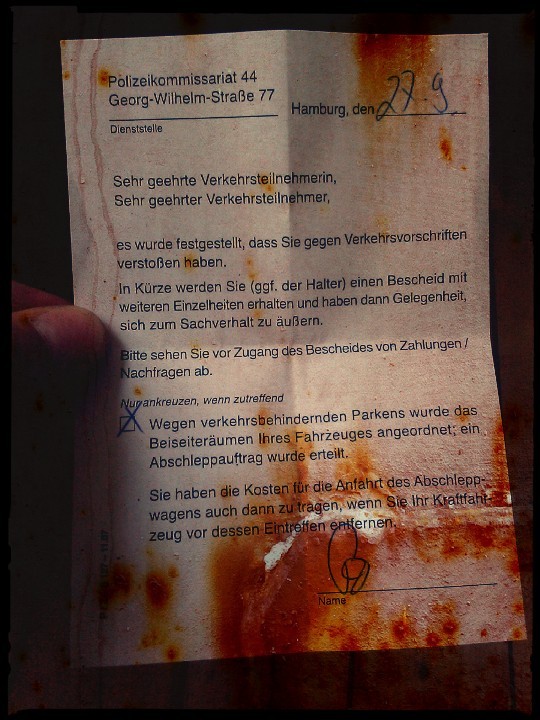 Polizeikommissariat 44
Georg-Wilhelm-Straße 77
Hamburg, den 27.9
Dienststelle
Sehr geehrte Verkehrsteilnehmerin,
Sehr geehrter Verkehrsteilnehmer,
es wurde festgestellt, dass Sie gegen Verkehrsvorschriften
verstoßen haben.
In Kürze werden Sie (ggf. der Halter) einen Bescheid mit
weiteren Einzelheiten erhalten und haben dann Gelegenheit,
sich zum Sachverhalt zu äußern.
Bitte sehen Sie vor Zugang des Bescheides von Zahlungen /
Nachfragen ab.
Nur ankreuzen, wenn zutreffend
Wegen verkehrsbehindernden Parkens wurde das
Beiseiteräumen Ihres Fahrzeuges angeordnet; ein
Abschleppauftrag wurde erteilt.
Sie haben die Kosten für die Anfahrt des Abschlepp-
wagens auch dann zu tragen, wenn Sie Ihr Kraftfahr-
zeug vor dessen Eintreffen entfernen.
Name